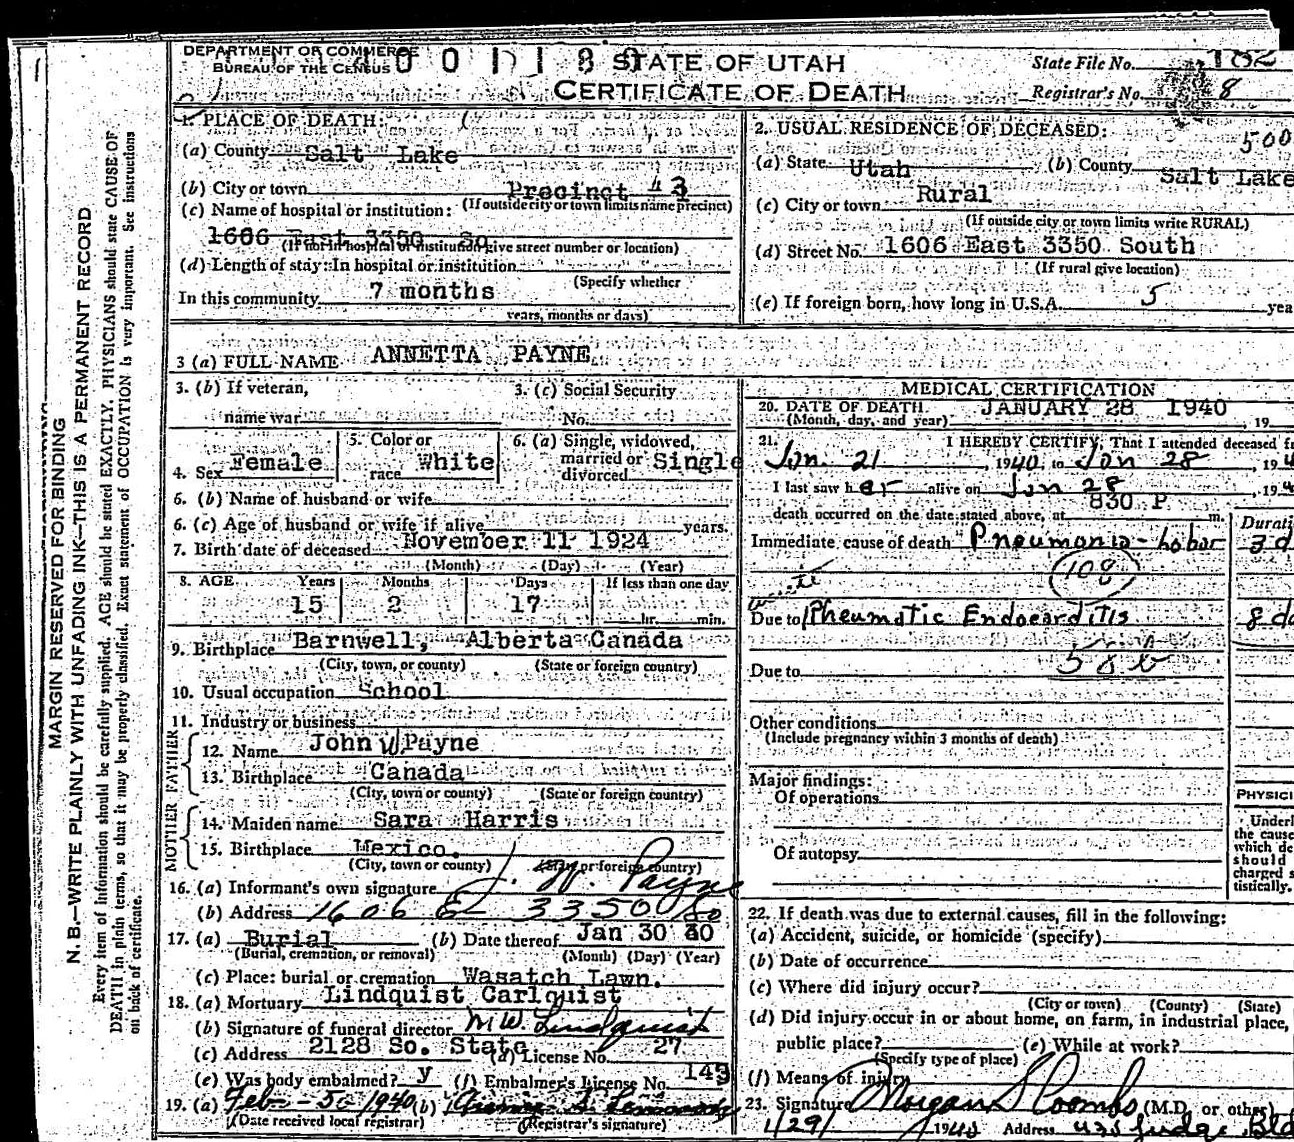 DEPARTMENT OF COMMERCE
BUREAU OF THE CENSUS
STATE OF UTAH
CERTIFICATE OF DEATH
State File No. 182
Registrar's No. 8
1. PLACE OF DEATH:
(a) County Salt Lake
(b) City or town Precinct 3
(If outside city or town limits name precinct)
(c) Name of hospital or institution:
1606 East 3350 So
(If not in hospital or institution give street number or location)
(d) Length of stay: In hospital or institution
(Specify whether
In this community 7 months
years, months or days)
2. USUAL RESIDENCE OF DECEASED:
500
(a) State Utah (b) County Salt Lake
(c) City or town Rural
(If outside city or town limits write RURAL)
(d) Street No. 1606 East 3350 South
(If rural give location)
(e) If foreign born, how long in U.S.A. 5 yea
3 (a) FULL NAME ANNETTA PAYNE
3. (b) If veteran,
name war
3. (c) Social Security
No.
4. Sex Female
5. Color or
race White
6. (a) Single, widowed,
married or
divorced Single
6. (b) Name of husband or wife
6. (c) Age of husband or wife if alive years.
7. Birth date of deceased November 11 1924
(Month) (Day) (Year)
8. AGE Years Months Days If less than one day
15 2 17 hr. min.
9. Birthplace Barnwell, Alberta Canada
(City, town, or county) (State or foreign country)
10. Usual occupation School
11. Industry or business
FATHER
12. Name John W Payne
13. Birthplace Canada
(City, town or county) (State or foreign country)
MOTHER
14. Maiden name Sara Harris
15. Birthplace Mexico.
(City, town or county) (State or foreign country)
16. (a) Informant's own signature J. W. Payne
(b) Address 1606 E- 3350 So
17. (a) Burial (b) Date thereof Jan 30 40
(Burial, cremation, or removal) (Month) (Day) (Year)
(c) Place: burial or cremation Wasatch Lawn.
18. (a) Mortuary Lindquist Carlquist
(b) Signature of funeral director M.W. Lindquist
(c) Address 2128 So. State (d) License No. 27
(e) Was body embalmed? y (f) Embalmer's License No. 143
19. (a) Feb - 5 - 1940 (b)
(Date received local registrar) (Registrar's signature)
MEDICAL CERTIFICATION
20. DATE OF DEATH JANUARY 28 1940
(Month, day, and year) , 19
21. I HEREBY CERTIFY, That I attended deceased fr
Jan. 21, 1940, to Jan 28, 194
I last saw her alive on Jan 28, 194
death occurred on the date stated above, at 830 P m.
Durati
Immediate cause of death Pneumonia - Lobar 3 d
108
Due to Rheumatic Endocarditis 8 da
58 b
Due to
Other conditions
(Include pregnancy within 3 months of death)
Major findings:
Of operations
Of autopsy
PHYSICI
Underl
the cause
which de
should
charged s
tistically.
22. If death was due to external causes, fill in the following:
(a) Accident, suicide, or homicide (specify)
(b) Date of occurrence
(c) Where did injury occur?
(City or town) (County) (State)
(d) Did injury occur in or about home, on farm, in industrial place,
public place? (e) While at work?
(Specify type of place)
(f) Means of injury
23. Signature Morgan S Coombs (M.D. or other)
1/29/ 1940 Address 435 Judge Bld
MARGIN RESERVED FOR BINDING
N. B.—WRITE PLAINLY WITH UNFADING INK—THIS IS A PERMANENT RECORD
Every item of information should be carefully supplied. AGE should be stated EXACTLY. PHYSICIANS should state CAUSE OF
DEATH in plain terms, so that it may be properly classified. Exact statement of OCCUPATION is very important. See instructions
on back of certificate.